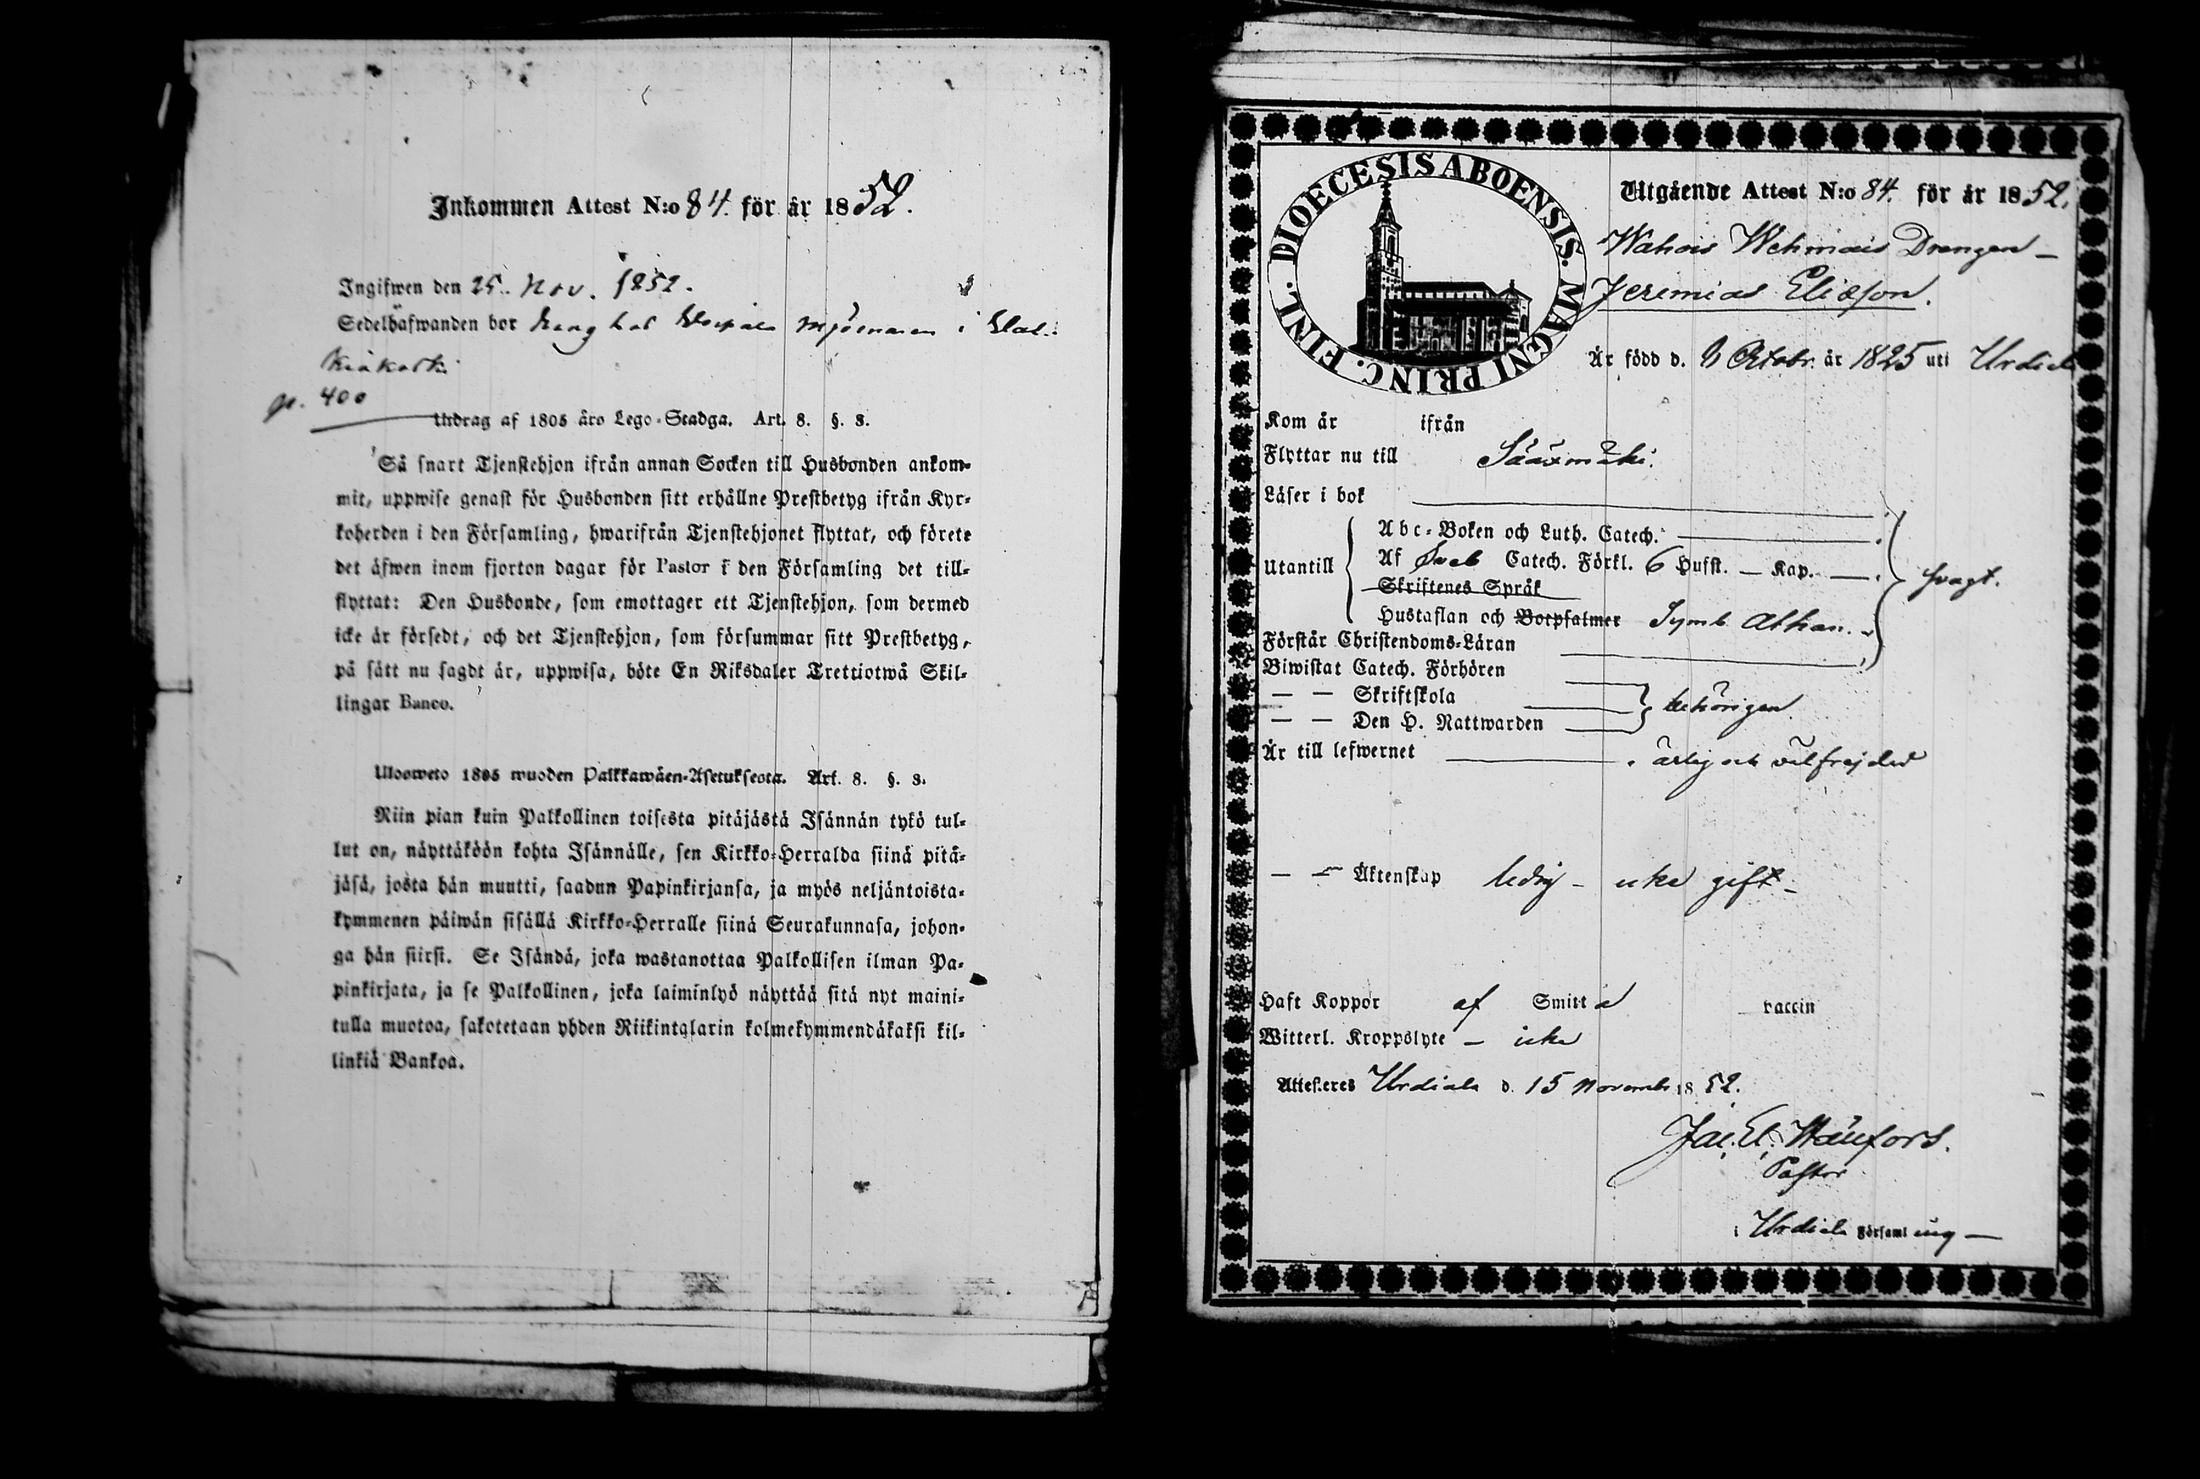 Inkommen Attest N:o 84. för år 1852.
Ingifwen den 25. Nov. 1852.
Sedelhafwanden bor hos i
p. 400
Utdrag af 1805 åro Lego-Stadga. Art. 8. §. 3.
Så snart Tjenstehjon ifrån annan Socken till Husbonden ankom-
mit, uppwise genast för Husbonden sitt erhållne Prestbetyg ifrån Kyr-
koherden i den Församling, hwarifrån Tjenstehjonet flyttat, och förete
det äfwen inom fjorton dagar för Pastor i den Församling det till-
flyttat: Den Husbonde, som emottager ett Tjenstehjon, som dermed
icke är försedt, och det Tjenstehjon, som försummar sitt Prestbetyg,
på sätt nu sagdt är, uppwisa, böte En Riksdaler Trettiotwå Skil-
lingar Banco.
Ulosweto 1805 wuoden Palkkawäen-Asetuksesta. Art. 8. §. 3.
Niin pian kuin Palkollinen toisesta pitäjästä Isännän tykö tul-
lut on, näyttäköön kohta Isännälle, sen Kirkko-Herralda siinä pitä-
jäsä, josta hän muutti, saadun Papinkirjansa, ja myös neljäntoista-
kymmenen päiwän sisällä Kirkko-Herralle siinä Seurakunnasa, johon-
ga hän siirsi. Se Isändä, joka wastanottaa Palkollisen ilman Pa-
pinkirjata, ja se Palkollinen, joka laiminlyö näyttää sitä nyt maini-
tulla muotoa, sakotetaan yhden Riikintalarin kolmekymmendäkaksi kil-
linkiä Bankoa.
DIOECESIS ABOENSIS. MAGNI PRINC. FINL.
Utgående Attest N:o 84. för år 1852.
Wahois Wehmais Drengen —
Jeremias Eliæson.
Är född d. 8 Octobr. år 1825 uti Urdiala
Kom år ifrån
Flyttar nu till Sääxmäki.
Läser i bok
Abc-Boken och Luth. Catech.
Utantill Af Sveb Catech. Förkl. 6 Hufst. — Kap. — svagt.
Skriftenes Språk
Hustaflan och Botpsalmer Symb. Athan.
Förstår Christendoms-Läran
Biwistat Catech. Förhören
— — Skriftskola behörigen
— — Den H. Nattwarden
Är till lefwernet ärlig och välfrejdad
— — Äktenskap ledig — icke gift —
Haft Koppor af Smitta vaccin
Witterl. Kroppslyte — icke
Attesteres Urdiala d. 15 November 1852.
Jac. El. Wänfors.
Pastor
i Urdiala Församling —